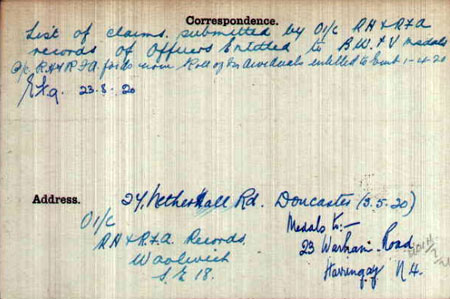 Correspondence.
List of claims submitted by O1/c RH & RFA
records of Officers Entitled to B.W. & V medals
O/c RH & RFA fords nom Roll of Individuals entitled to Emb 1-4-20
23-8-20
Address.
24, Netherhall Rd. Doncaster (3.5.20)
O1/c
RH & R.F.A. Records
Woolwich
S.E 18.
Medals to:-
23 Warham Road
Harringay N 4.